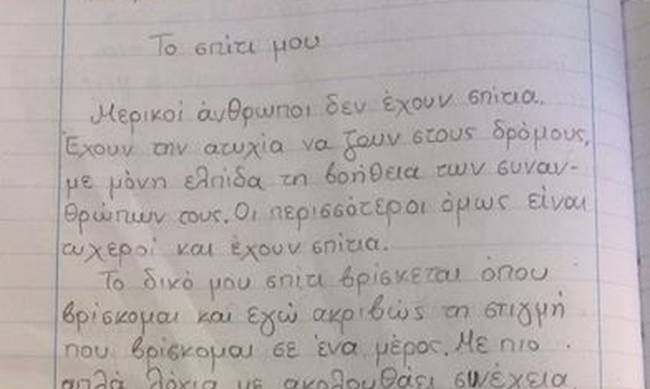 Το σπίτι μου
Μερικοί άνθρωποι δεν έχουν σπίτια.
Έχουν την ατυχία να ζουν στους δρόμους,
με μόνη ελπίδα τη βοήθεια των συναν-
θρώπων τους. Οι περισσότεροι όμως είναι
τυχεροί και έχουν σπίτια.
Το δικό μου σπίτι βρίσκεται όπου
βρίσκομαι και εγώ ακριβώς τη στιγμή
που βρίσκομαι σε ένα μέρος. Με πιο
απλά λόγια με ακολουθάει συνέχεια